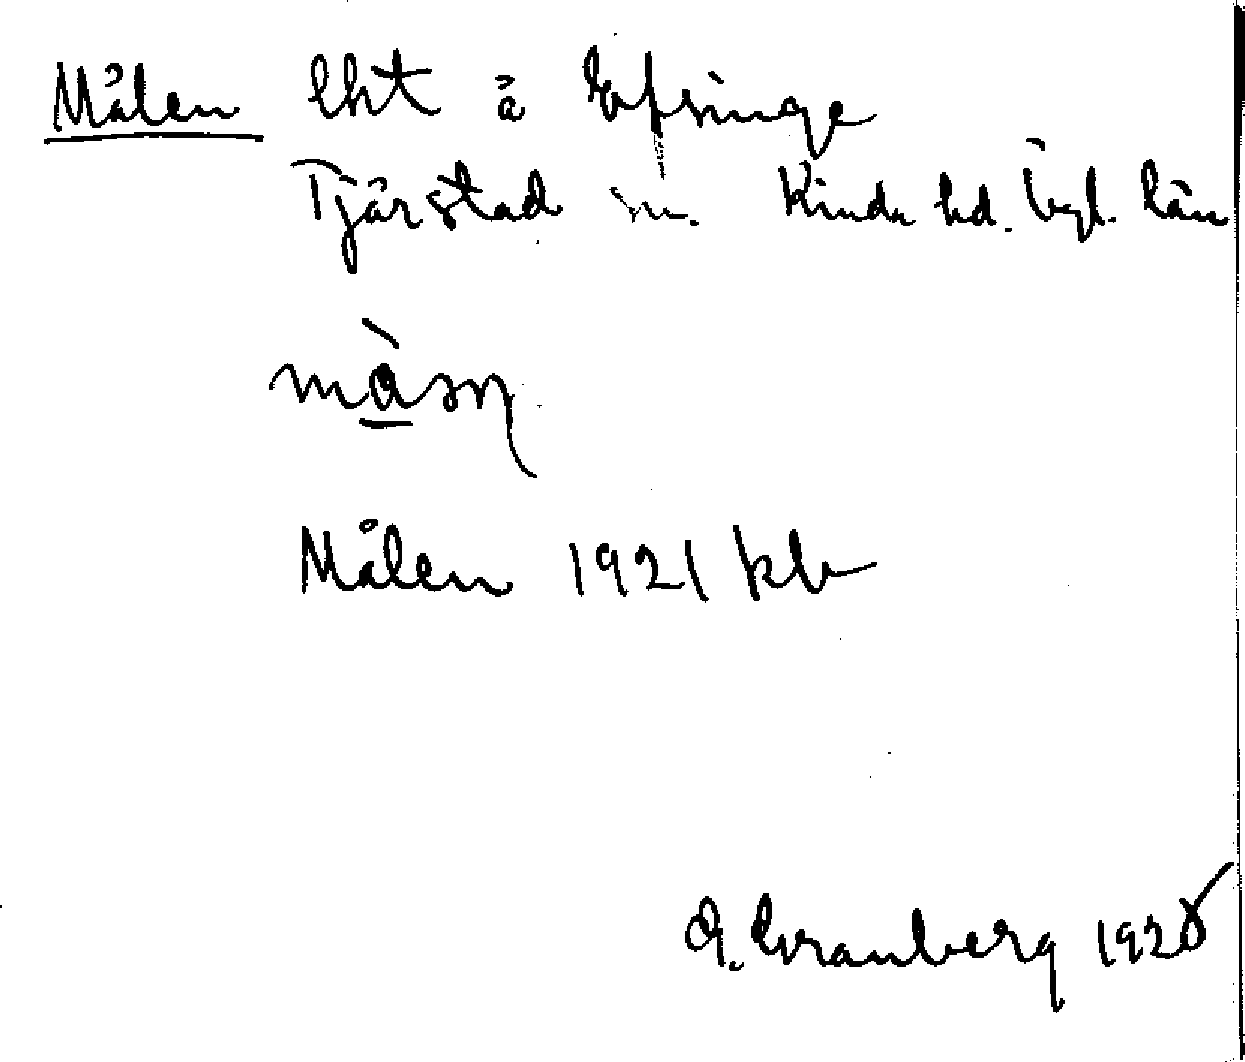 Målen lht å Efringe
Tjärstad sn. Kinda hd. Ögl. län
Målen 1921 kb
G. Granberg 1928